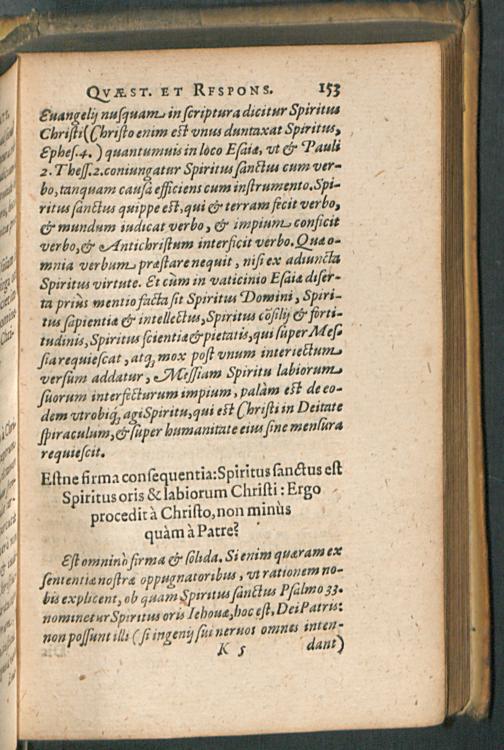 QVÆST. ET RESPONS. 153
Euangelij nusquam in scriptura dicitur Spiritus
Christi (Christo enim est vnus duntaxat Spiritus,
Ephes. 4.) quantumuis in loco Esaiæ, vt & Pauli
2. Thess. 2. coniungatur Spiritus sanctus cum ver-
bo, tanquam causa efficiens cum instrumento. Spi-
ritus sanctus quippe est, qui & terram fecit verbo,
& mundum iudicat verbo, & impium conficit
verbo, & Antichristum interficit verbo. Quæ o-
mnia verbum præstare nequit, nisi ex adiuncta
Spiritus virtute. Et cùm in vaticinio Esaiæ diser-
ta priùs mentio facta sit Spiritus Domini, Spiri-
tus sapientiæ & intellectus, Spiritus cõsilij & forti-
tudinis, Spiritus scientiæ & pietatis, qui super Mes-
sia requiescat, atq; mox post vnum interiectum
versum addatur, Messiam Spiritu labiorum
suorum interfecturum impium, palàm est de eo-
dem vtrobiq; agi Spiritu, qui est Christi in Deitate
spiraculum, & super humanitate eius sine mensura
requiescit.
Estne firma consequentia: Spiritus sanctus est
Spiritus oris & labiorum Christi: Ergo
procedit à Christo, non minùs
quàm à Patre?
Est omninò firma & solida. Si enim quæram ex
sententiæ nostræ oppugnatoribus, vt rationem no-
bis explicent, ob quam Spiritus sanctus Psalmo 33.
nominetur Spiritus oris Iehouæ, hoc est, Dei Patris:
non possunt illi (si ingenij sui neruos omnes inten-
K 5 dant)